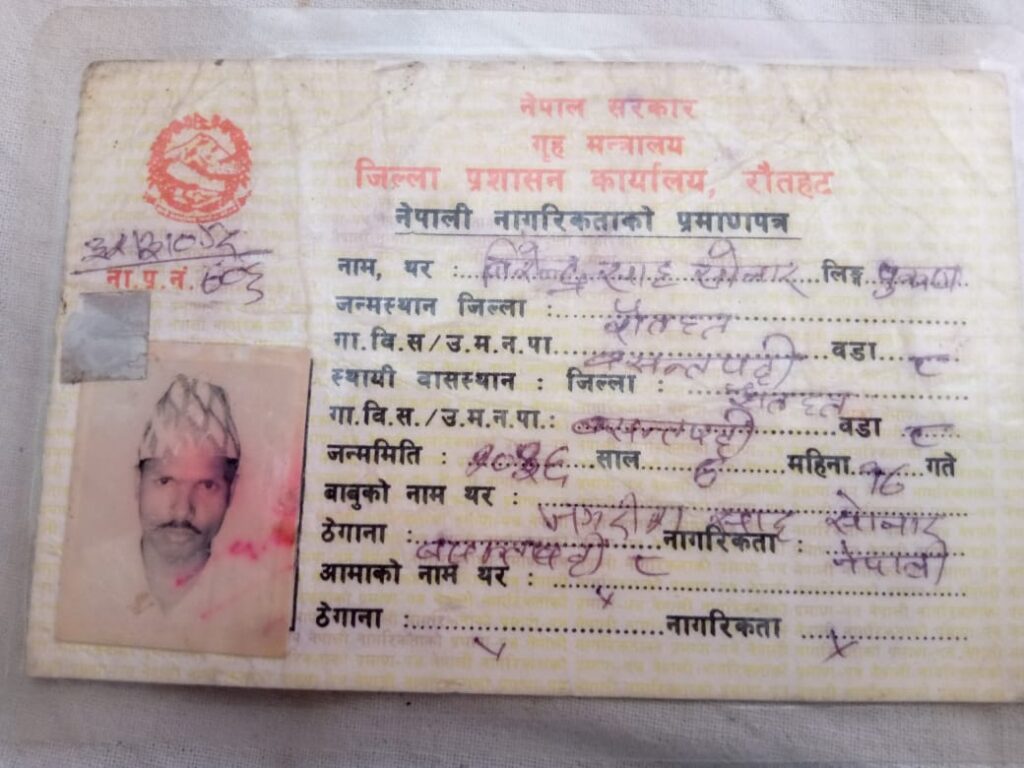 नेपाल सरकार
गृह मन्त्रालय
जिल्ला प्रशासन कार्यालय, रौतहट
नेपाली नागरिकताको प्रमाणपत्र
ना.प्र.नं.
नाम, थर : साह सोनार लिङ्ग पुरुष
जन्मस्थान जिल्ला : रौतहट
गा.वि.स/उ.म.न.पा. बसन्तपट्टी वडा ८
स्थायी वासस्थान : जिल्ला : रौतहट
गा.वि.स./उ.म.न.पा.: बसन्तपट्टी वडा ८
जन्ममिति : साल महिना १८ गते
बाबुको नाम थर : साह सोनार
ठेगाना : बसन्तपट्टी ८ नागरिकता : नेपाली
आमाको नाम थर : x
ठेगाना : x नागरिकता x